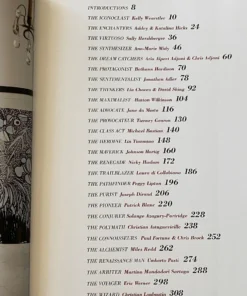 INTRODUCTIONS 8
THE ICONOCLAST Kelly Wearstler 10
THE ENCHANTERS Ashley & Karolina Hicks 24
THE VIRTUOSO Sally Hershberger 36
THE SYNTHESIZER Ann-Marie Midy 46
THE DREAM CATCHERS Aria Alpert Adjani & Chris Adjani 60
THE PROTAGONIST Bethann Hardison 70
THE SENTIMENTALIST Jonathan Adler 78
THE THINKERS Liu Chunxi & David Shing 92
THE MAXIMALIST Hutton Wilkinson 104
THE ADVOCATE Jane du Matis 116
THE PROVOCATEUR Tierney Gearon 130
THE CLASS ACT Michael Bastian 140
THE HEROINE Liz Vannmar 148
THE MAVERICK Johnson Hartig 160
THE RENEGADE Nicky Haslam 172
THE TRAILBLAZER Laura de Gallehonec 186
THE PATHFINDER Peggy Lipton 196
THE PURIST Joseph Dirand 206
THE PIONEER Patrick Blanc 220
THE CONJURER Solange Azagury-Partridge 228
THE POLYMATH Christian Astuguevieille 238
THE CONNOISSEURS Paul Fortune & Chris Brock 252
THE ALCHEMIST Miles Redd 262
THE RENAISSANCE MAN Umberto Pasti 274
THE ARBITER Martina Mondadori Sartogo 288
THE VOYAGER Eric Werner 298
THE WIZARD Christian Louboutin 308